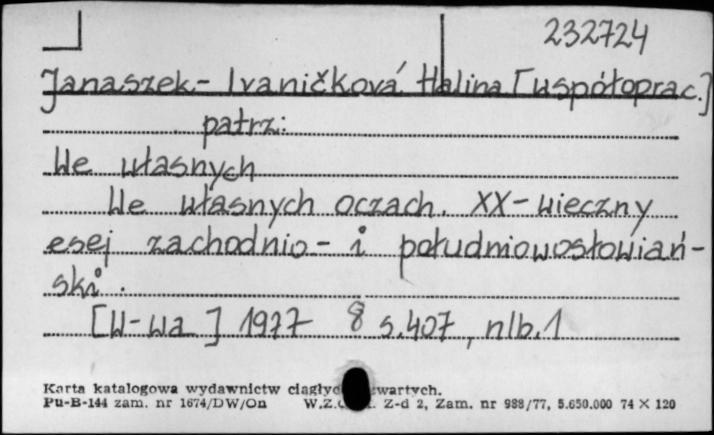 232724
Janaszek-Ivaničková Halina [współoprac.]
patrz:
We własnych
We własnych oczach. XX-wieczny
esej zachodnio- i południowosłowiań-
ski.
[W-wa] 1977 8 s.407, nlb.1
Karta katalogowa wydawnictw ciągłyc wartych.
Pu-B-144 zam. nr 1674/DW/On W.Z. Z-d 2, Zam. nr 988/77, 5.650.000 74 X 120